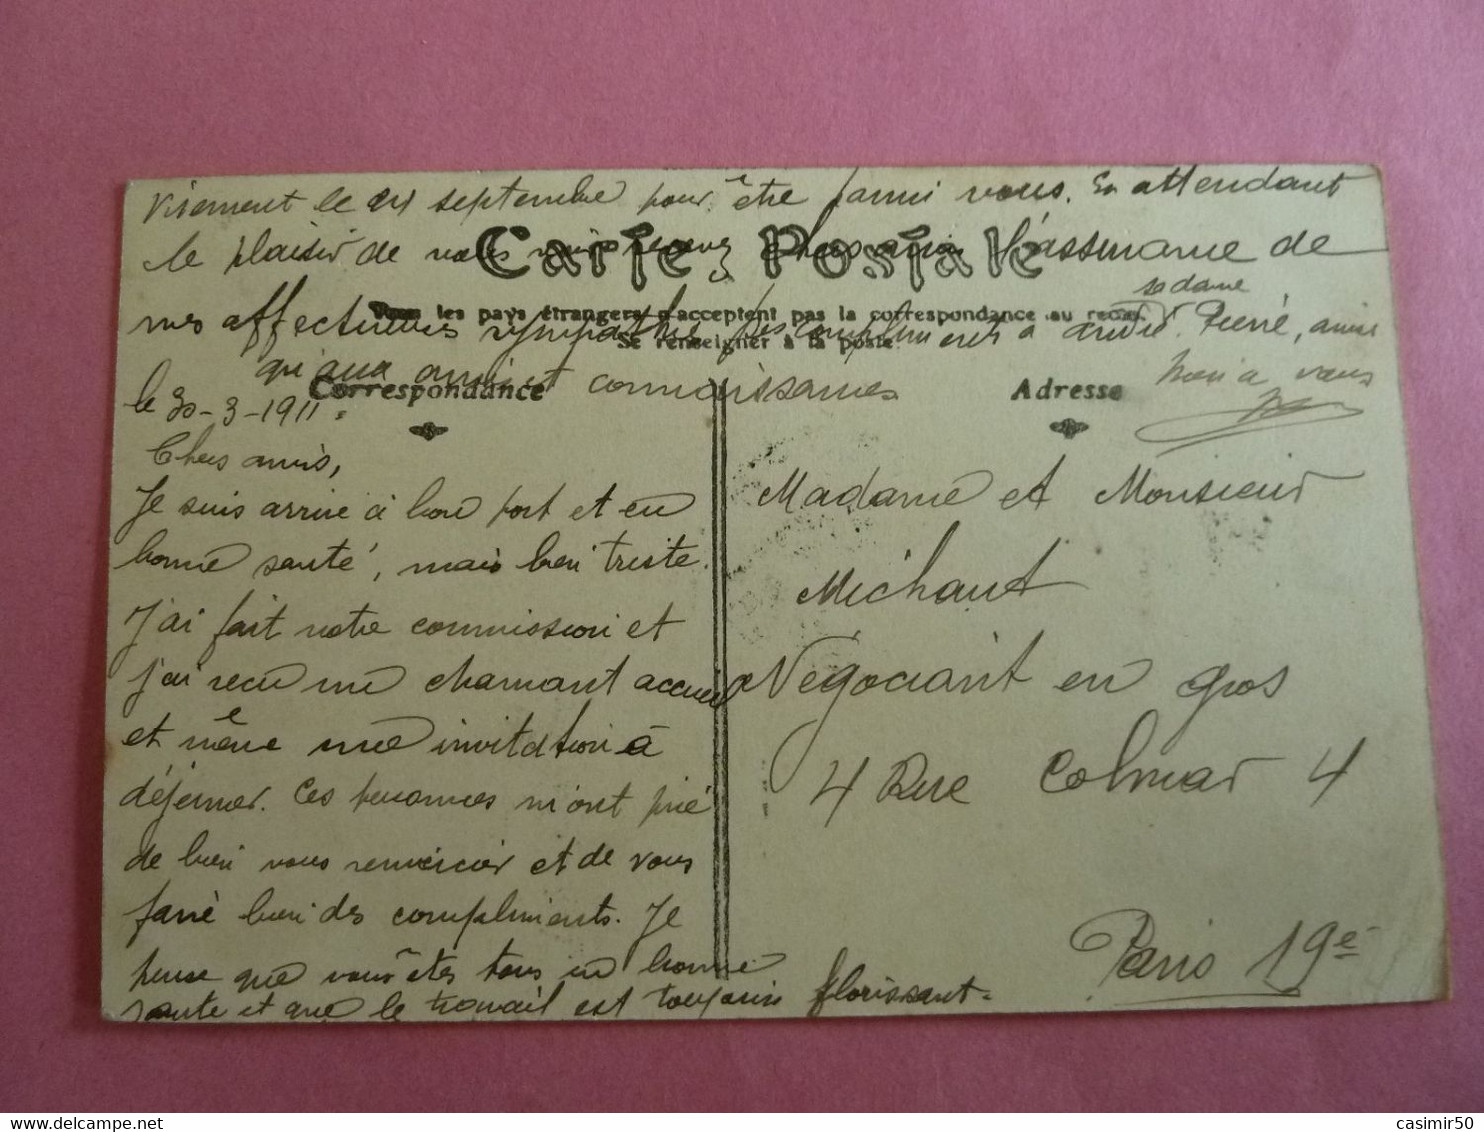 Carte Postale
Tous les pays étrangers n'acceptent pas la correspondance au recto.
Se renseigner à la poste
Correspondance
Adresse
le 30-3-1911.
Chers amis,
Je suis arrivé à bon port et en
bonne santé, mais bien triste.
J'ai fait votre commission et
j'ai reçu un charmant accueil
et même une invitation à
déjeuner. Ces personnes m'ont prié
de bien vous remercier et de vous
faire bien des compliments. Je
pense que vous êtes tous en bonne
santé et que le travail est toujours florissant.
Vivement le septembre pour être parmi vous. En attendant
le plaisir de vous recevez chers amis l'assurance de
mes affectueuses sympathies compliments à André Pierre, ainsi
sa dame
qu'aux amis et connaissances
bien à vous
Madame et Monsieur
Michaut
Négociant en gros
4 Rue Colmar 4
Paris 19e
casimir50